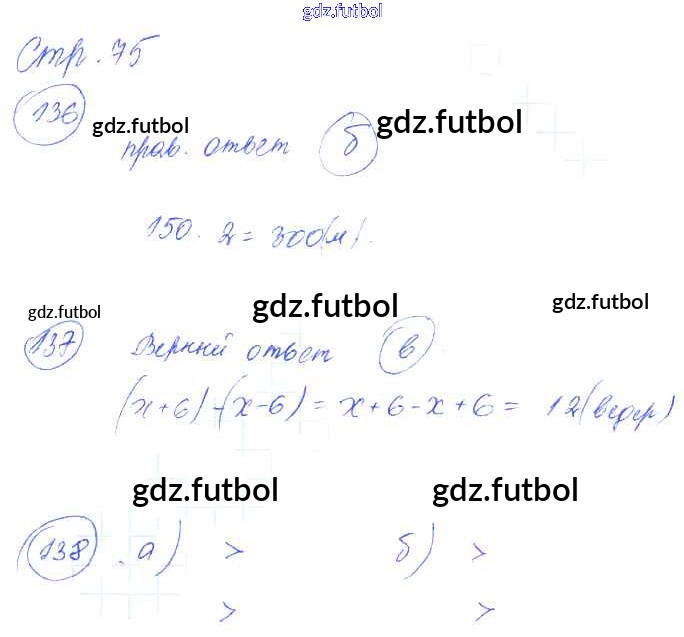 gdz.futbol
Стр. 75
136
gdz.futbol
прав. ответ б gdz.futbol
150 · 2 = 300(м).
gdz.futbol gdz.futbol gdz.futbol
137 Верный ответ в.
(x+6)-(x-6) = x+6-x+6 = 12(ведер)
gdz.futbol gdz.futbol
138. а) > б) >
> >